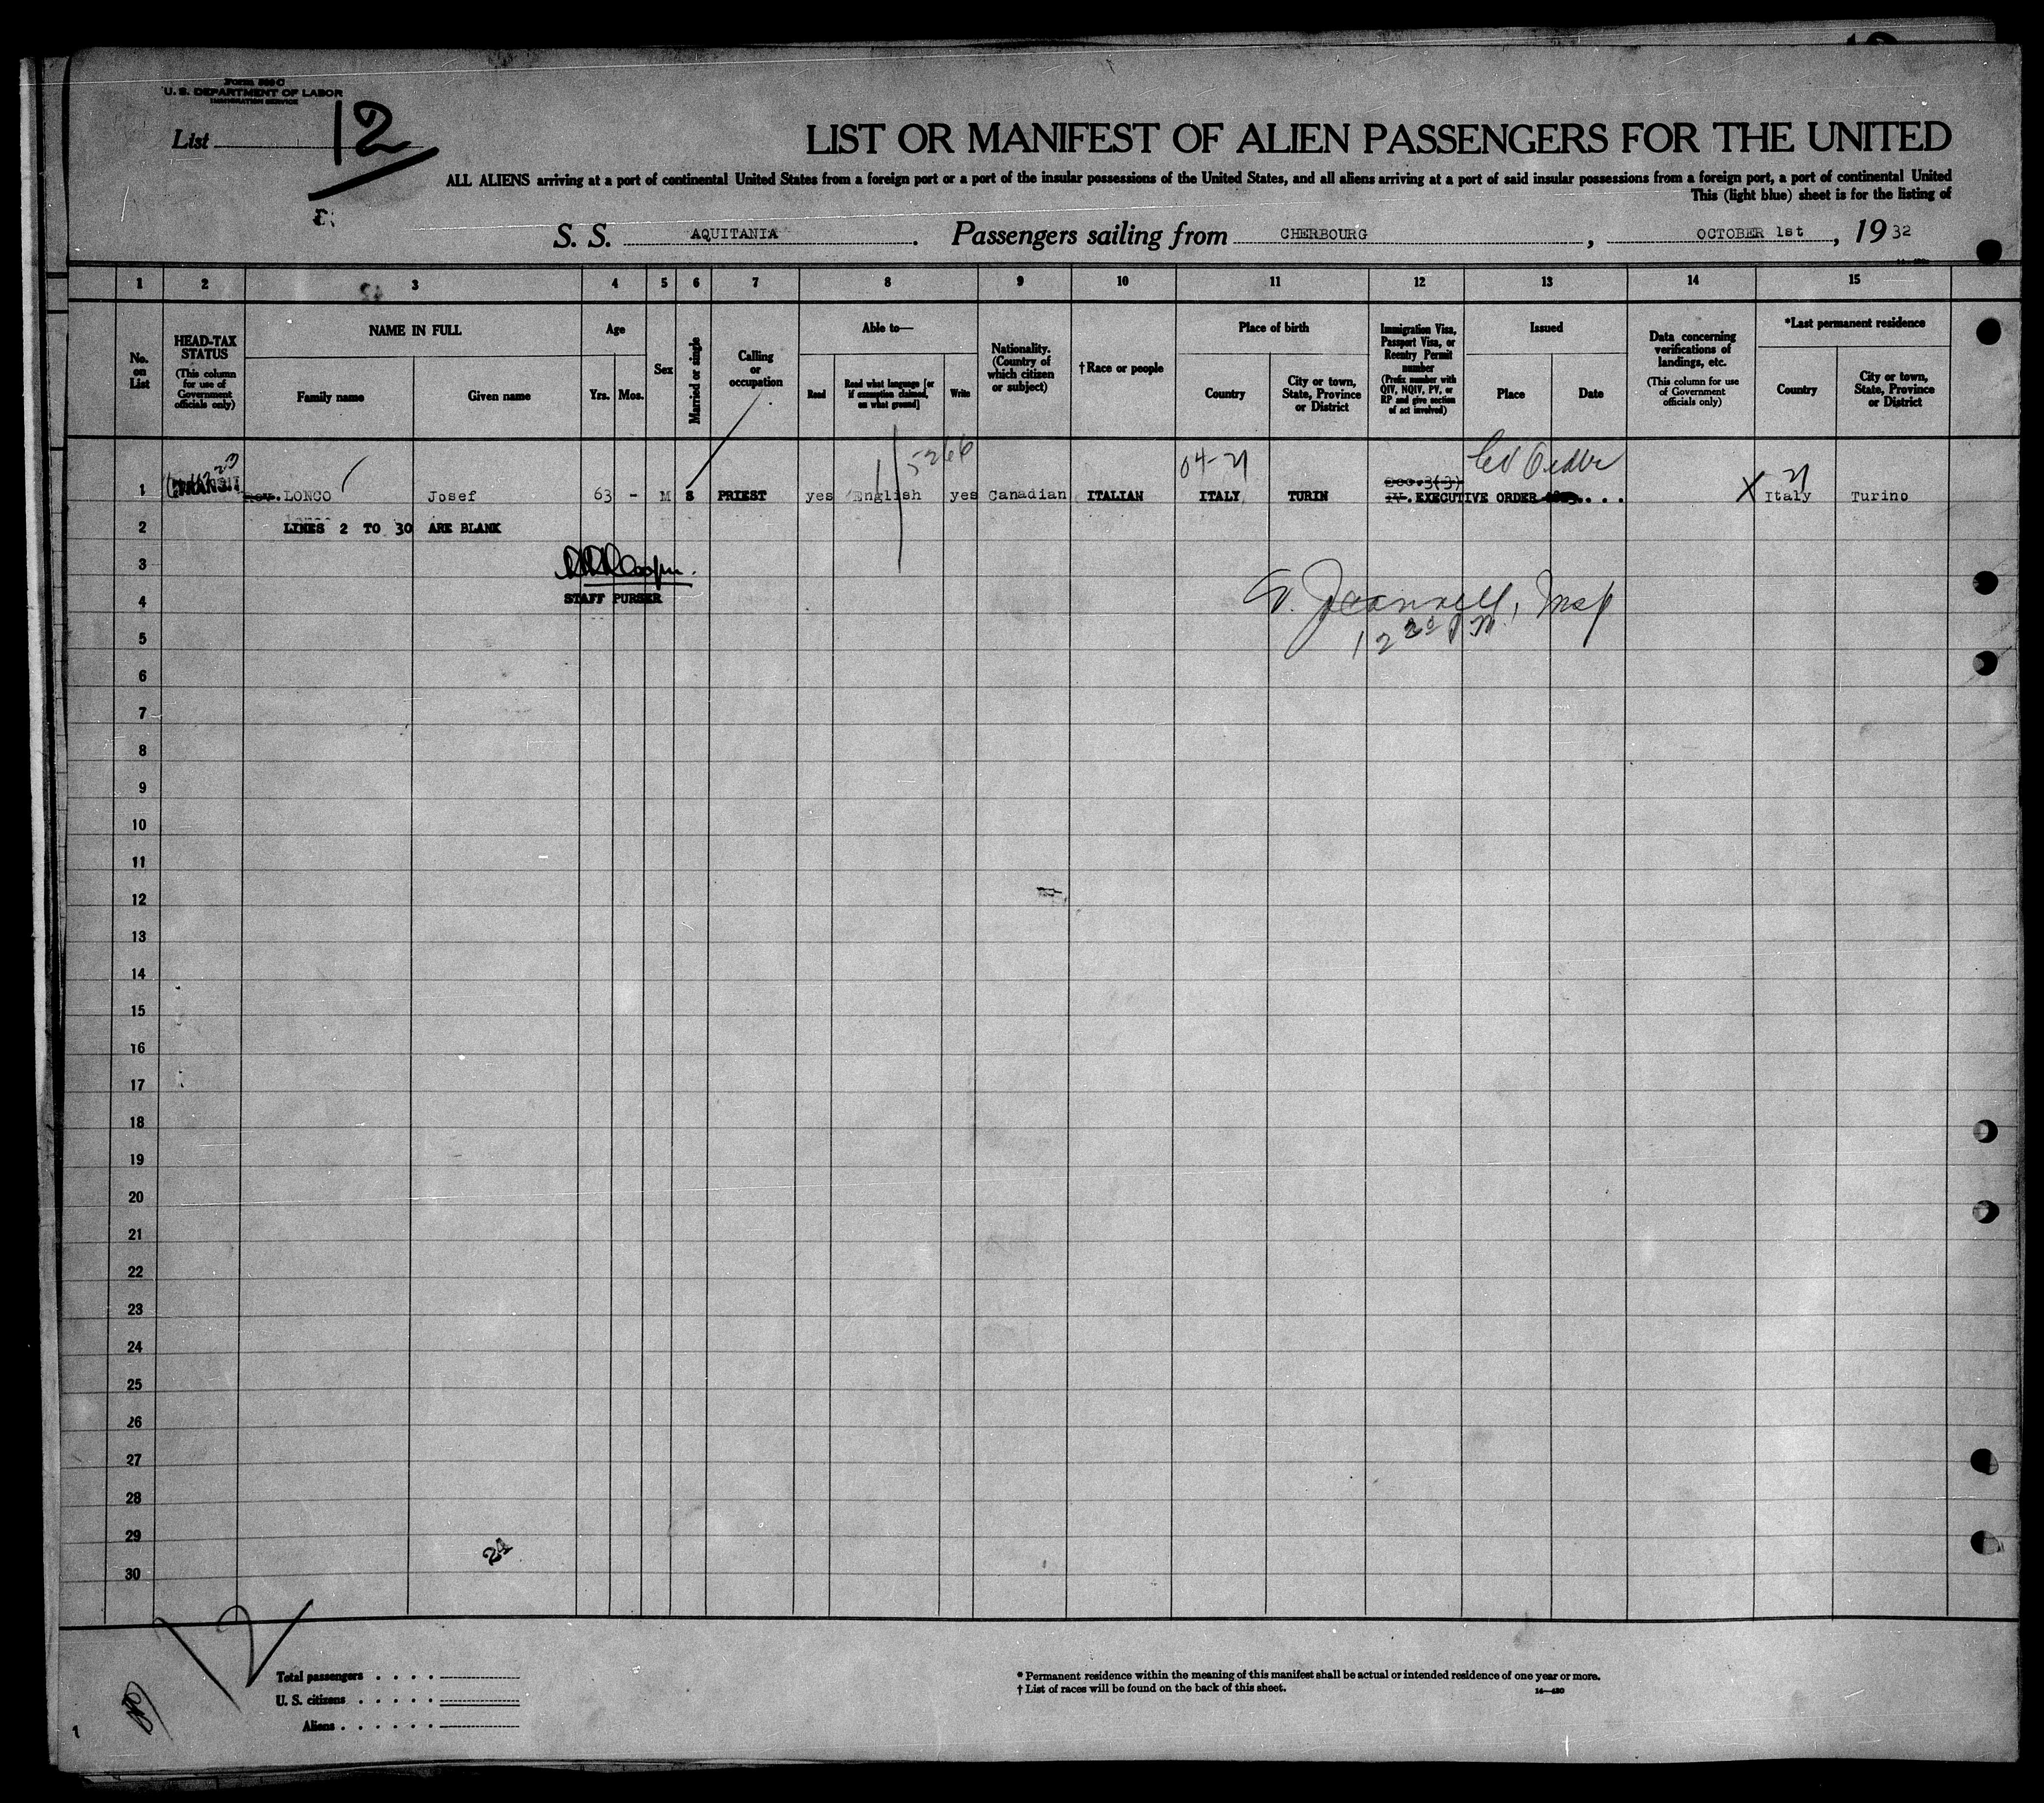 Form 500 C
U. S. DEPARTMENT OF LABOR
IMMIGRATION SERVICE
List 12
LIST OR MANIFEST OF ALIEN PASSENGERS FOR THE UNITED
ALL ALIENS arriving at a port of continental United States from a foreign port or a port of the insular possessions of the United States, and all aliens arriving at a port of said insular possessions from a foreign port, a port of continental United
This (light blue) sheet is for the listing of
S. S. AQUITANIA. Passengers sailing from CHERBOURG, OCTOBER 1st, 1932
1 2 3 4 5 6 7 8 9 10 11 12 13 14 15
No. on List
HEAD-TAX STATUS
(This column for use of Government officials only)
NAME IN FULL
Family name
Given name
Age
Yrs.
Mos.
Sex
Married or single
Calling or occupation
Able to—
Read
Read what language [or if exemption claimed, on what ground]
Write
Nationality. (Country of which citizen or subject)
†Race or people
Place of birth
Country
City or town, State, Province or District
Immigration Visa, Passport Visa, or Reentry Permit number
(Prefix number with QIV, NQIV, PV, or RP and give section of act involved)
Issued
Place
Date
Data concerning verifications of landings, etc.
(This column for use of Government officials only)
*Last permanent residence
Country
City or town, State, Province or District
5266
04-21
Order
21
Sec.3(3)
1 TRANSIT Rev. LONCO Josef 63 - M S PRIEST yes English yes Canadian ITALIAN ITALY TURIN IV. EXECUTIVE ORDER .... X Italy Turino
2 LINES 2 TO 30 ARE BLANK
3
STAFF PURSER
4
Insp
12 20 PM
5
6
7
8
9
10
11
12
13
14
15
16
17
18
19
20
21
22
23
24
25
26
27
28
29
24
30
Total passengers . . . .
U. S. citizens . . . . .
Aliens . . . . . .
* Permanent residence within the meaning of this manifest shall be actual or intended residence of one year or more.
† List of races will be found on the back of this sheet.
14—430
1